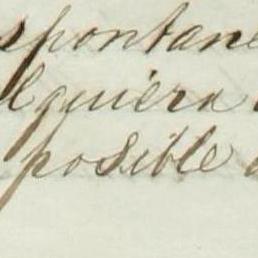 spontane
lquiera
posible